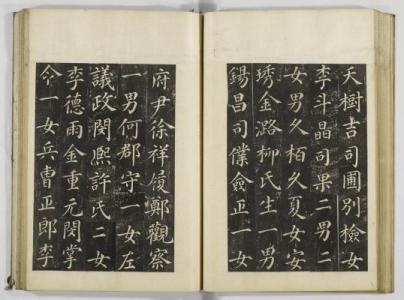 天樹吉司圃別檢女
李斗晶司果二男二
女男久栢久夏女安
琇金潞柳氏生一男
錫昌司僕僉正一女
府尹徐祥履鄭觀察
一男何郡守一女左
議政閔熙許氏二女
李德雨金重元閔掌
令一女兵曹正郎李